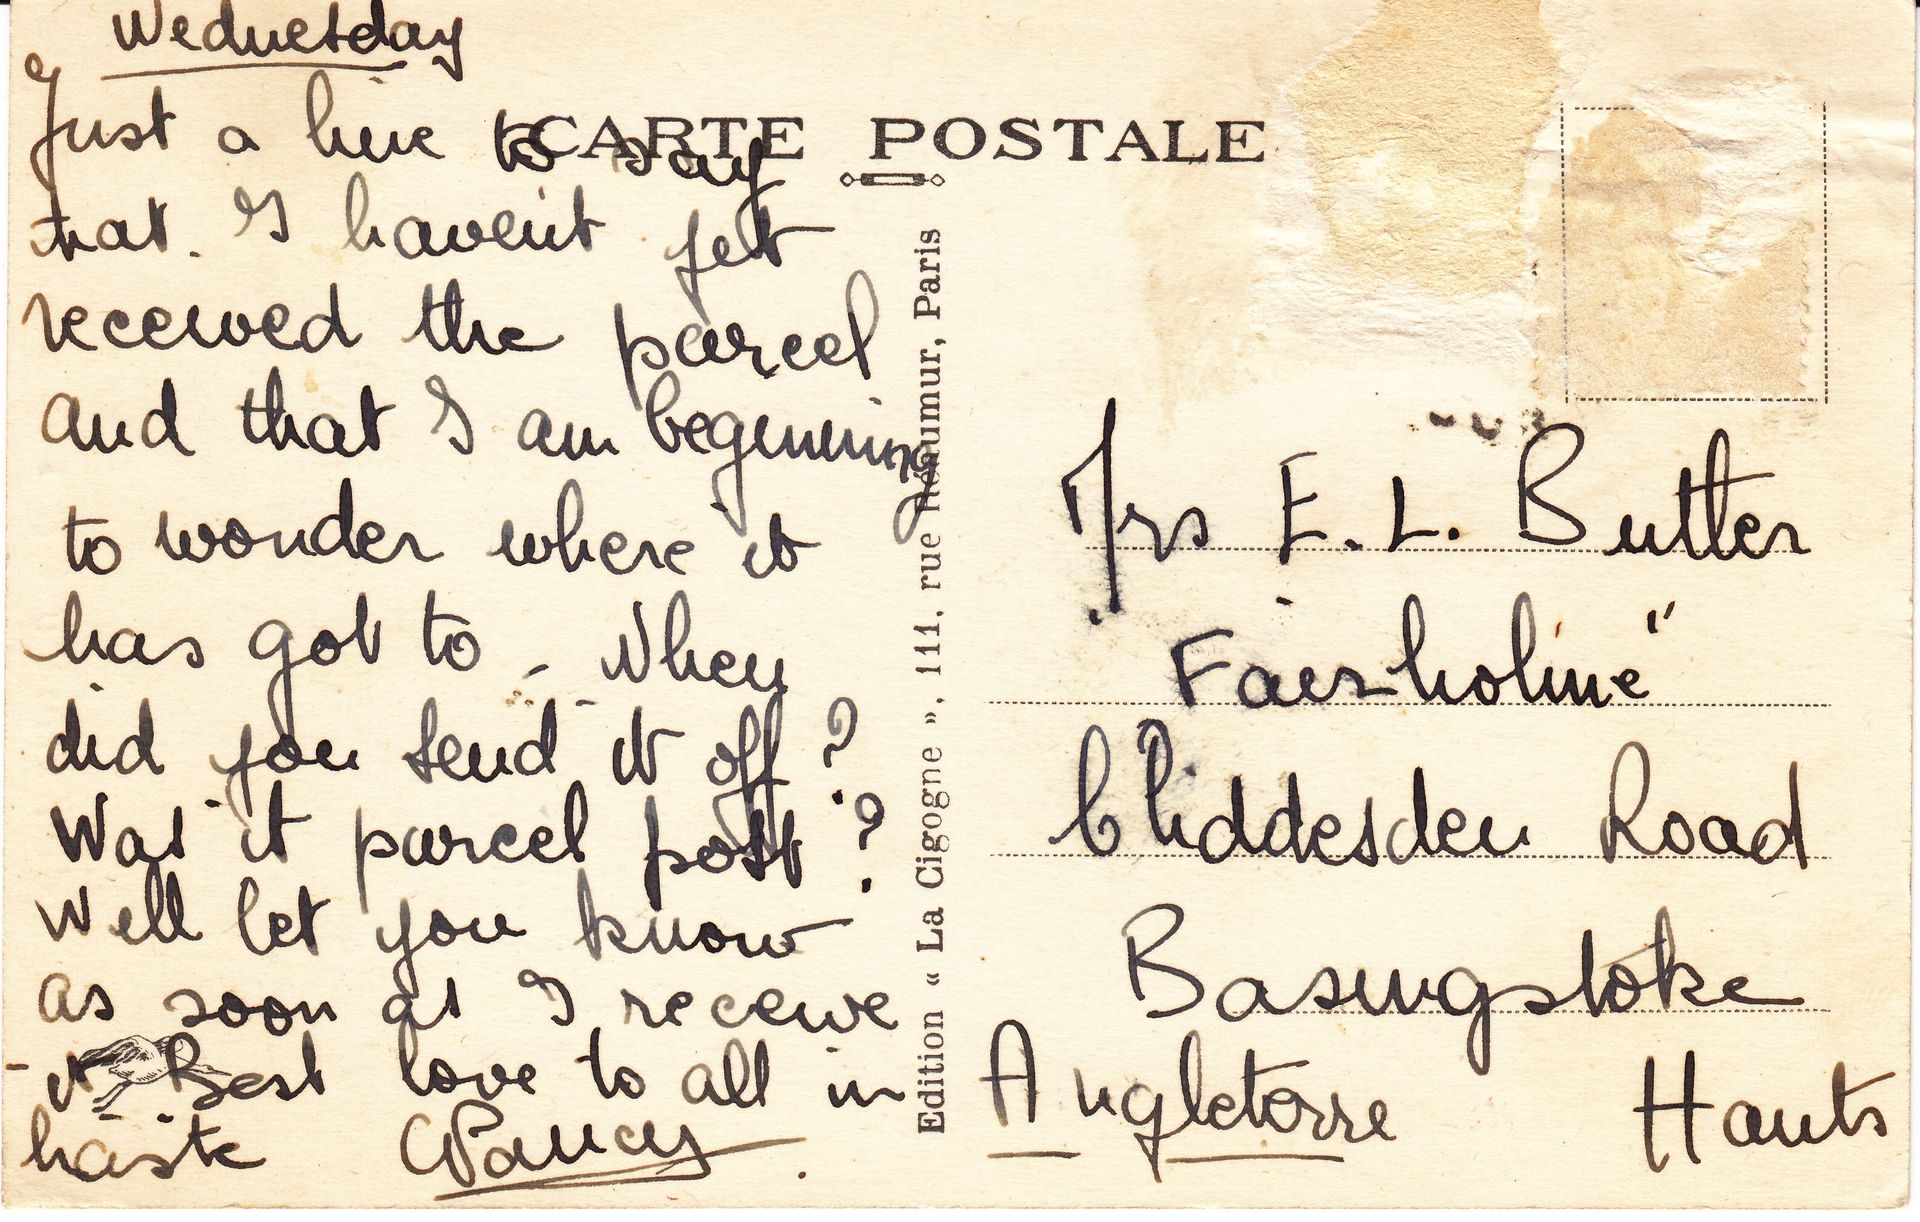 Wednesday
Just a line to say
that. I haven't yet
received the parcel
and that I am beginning
to wonder where it
has got to - When
did you send it off?
Was it parcel post?
Well let you know
as soon as I receive
it Best love to all in
haste Pancy
CARTE POSTALE
Edition « La Cigogne », 111, rue Réaumur, Paris
Mrs E. L. Butler
"Fairholme"
Chiddesden Road
Basingstoke
Angleterre Hants